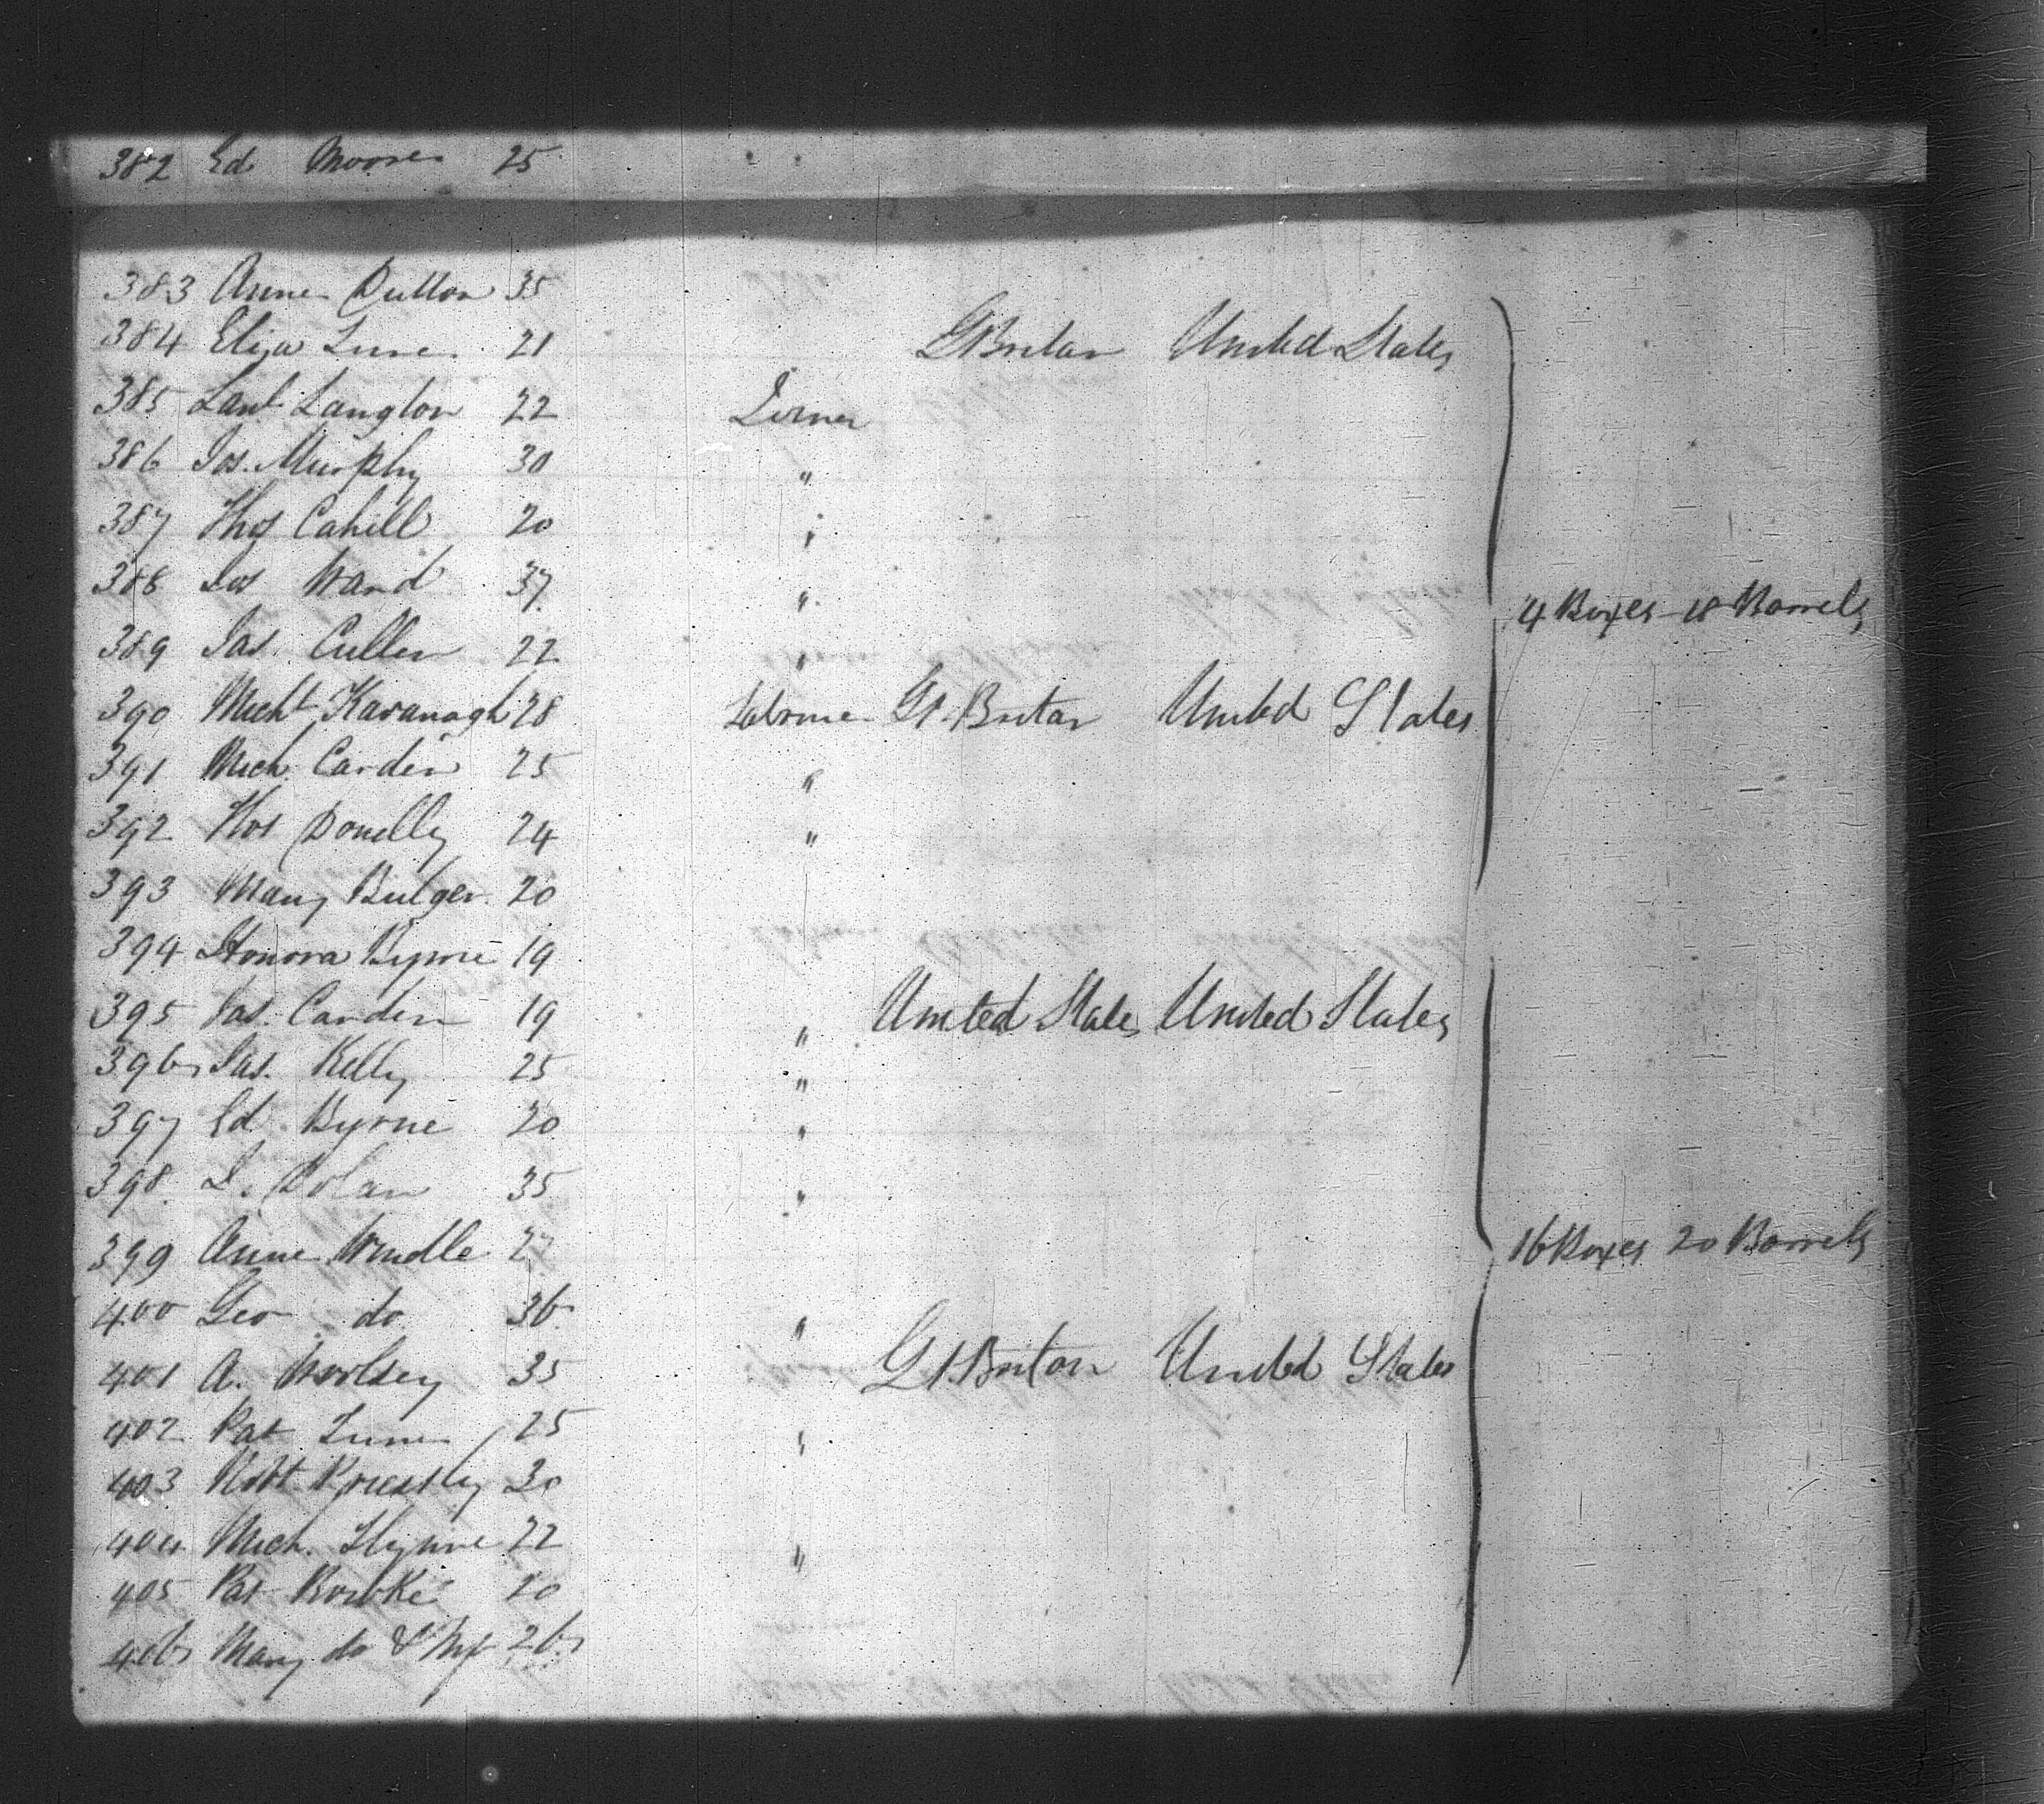 382 Ed Moores 25
383 Anne Dutton 35
384 Eliza Lune 21 Gt Britan United States
385 Laut Langton 22
386 Jos. Murphy 30 "
387 Thos Cahill 20 "
388 Jos Ward 37 "
389 Jas. Cullen 22 "
390 Micht Kavanagh 28 Gt. Britan United States
391 Mich Carden 25 "
392 Thos Donelly 24 "
393 Mary Bulger 20
394 Honora Byrne 19
395 Jas. Carden 19 " United States United States
396 Jas. Kelly 25 "
397 Ed Byrne 20 "
398 Dolan 35 "
399 Anne Wendle
400 Geo do 36 "
401 A. Woolsey 35 Gt Briton United States
402 Pat Lune 25 "
403 Robt Priestly 30
404 Mich. Flynne 22 "
405 Pat Rourke 20
406 Mary do & Inf 26
4 Boxes 18 Barrels
16 Boxes 20 Barrels